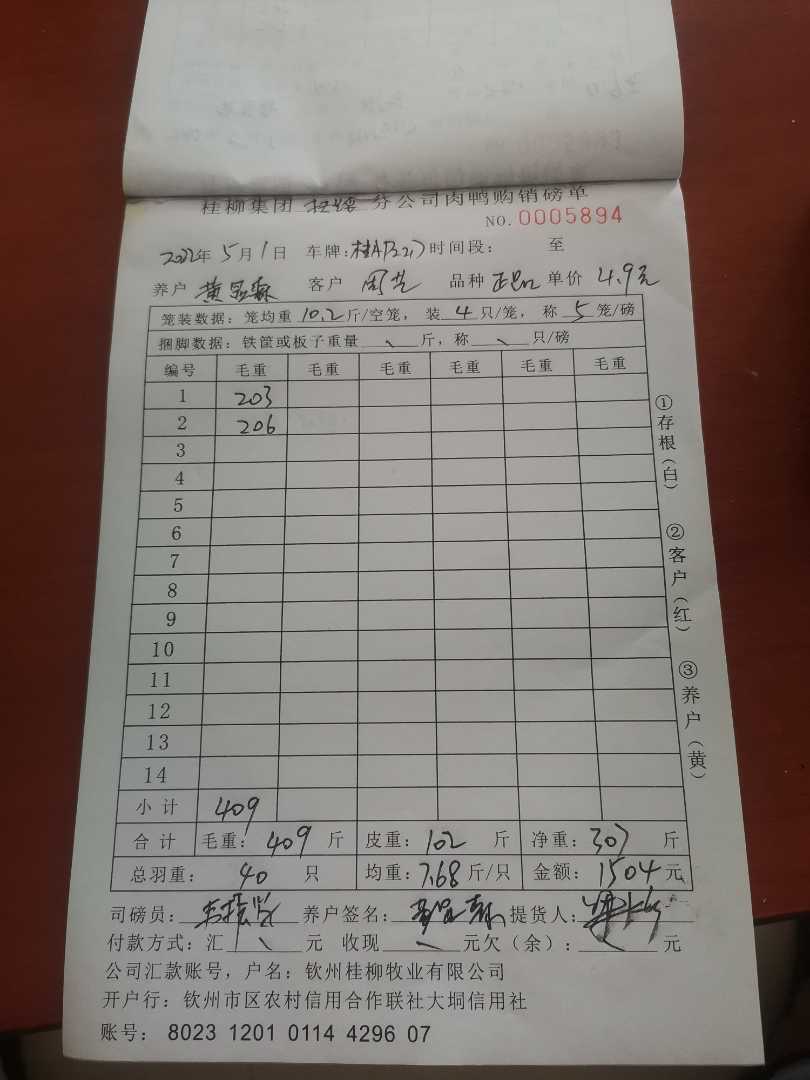 桂柳集团 分公司肉鸭购销磅单
NO. 0005894
2022年 5月 1日 车牌: 桂A 时间段: 至
养户 黄 森 客户 周 品种 单价 4.9元
笼装数据: 笼均重 10.2 斤/空笼, 装 4 只/笼, 称 5 笼/磅
捆脚数据: 铁筐或板子重量 、 斤, 称 、 只/磅
编号 毛重 毛重 毛重 毛重 毛重 毛重
1 203
2 206
3
4
5
6
7
8
9
10
11
12
13
14
小计 409
合计 毛重: 409 斤 皮重: 102 斤 净重: 307 斤
总羽重: 40 只 均重: 7.68 斤/只 金额: 1504 元
司磅员: 养户签名: 黄 森 提货人:
付款方式: 汇 、 元 收现 、 元欠(余): 、 元
公司汇款账号, 户名: 钦州桂柳牧业有限公司
开户行: 钦州市区农村信用合作联社大垌信用社
账号: 8023 1201 0114 4296 07
①存根(白)
②客户(红)
③养户(黄)